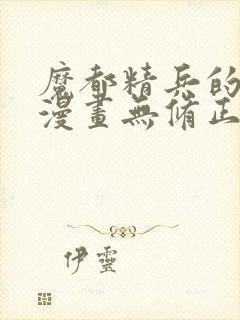 魔都精兵的
漫畫無脩正
伊靈